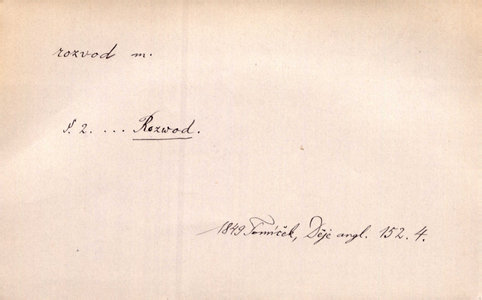 rozvod m.
§. 2. ... Rozwod.
1849 Tomíček, Děje angl. 152. 4.